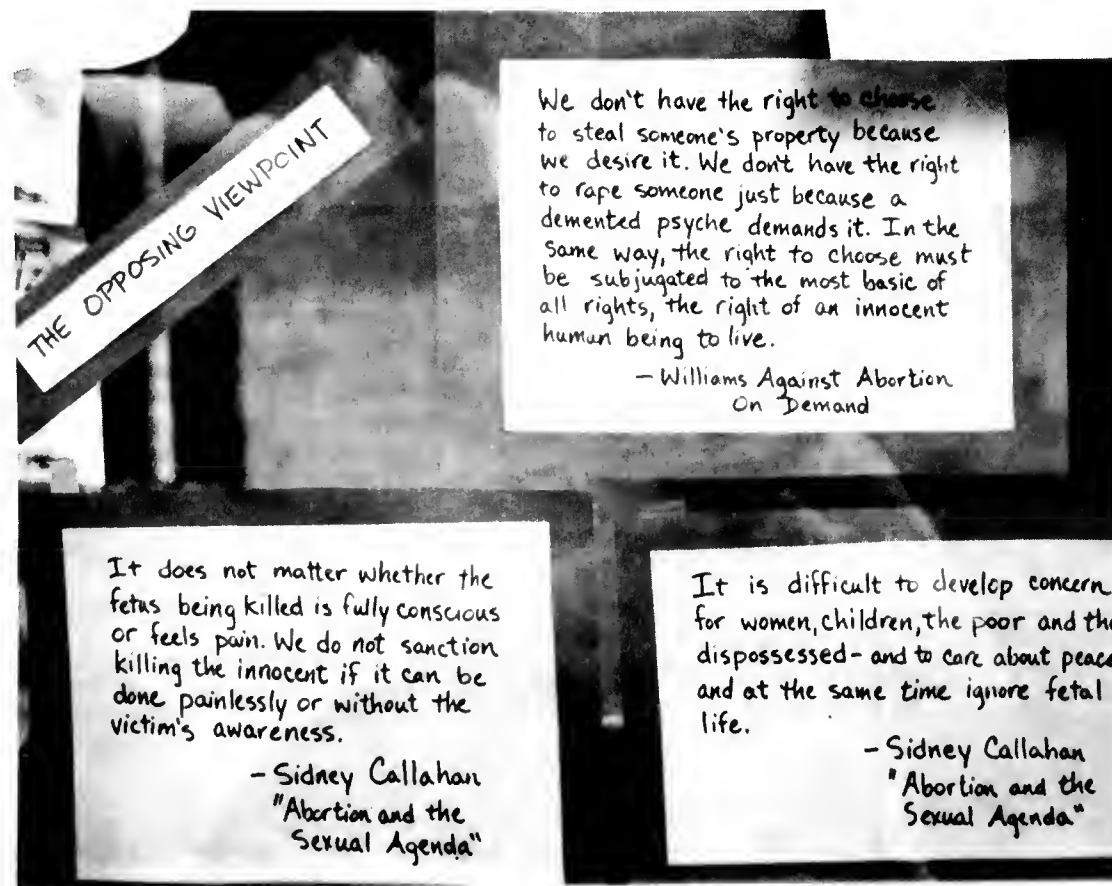 THE OPPOSING VIEWPOINT
We don't have the right to choose
to steal someone's property because
we desire it. We don't have the right
to rape someone just because a
demented psyche demands it. In the
same way, the right to choose must
be subjugated to the most basic of
all rights, the right of an innocent
human being to live.
- Williams Against Abortion
On Demand
It does not matter whether the
fetus being killed is fully conscious
or feels pain. We do not sanction
killing the innocent if it can be
done painlessly or without the
victim's awareness.
- Sidney Callahan
"Abortion and the
Sexual Agenda"
It is difficult to develop concern
for women, children, the poor and the
dispossessed - and to care about peace
and at the same time ignore fetal
life.
- Sidney Callahan
"Abortion and the
Sexual Agenda"